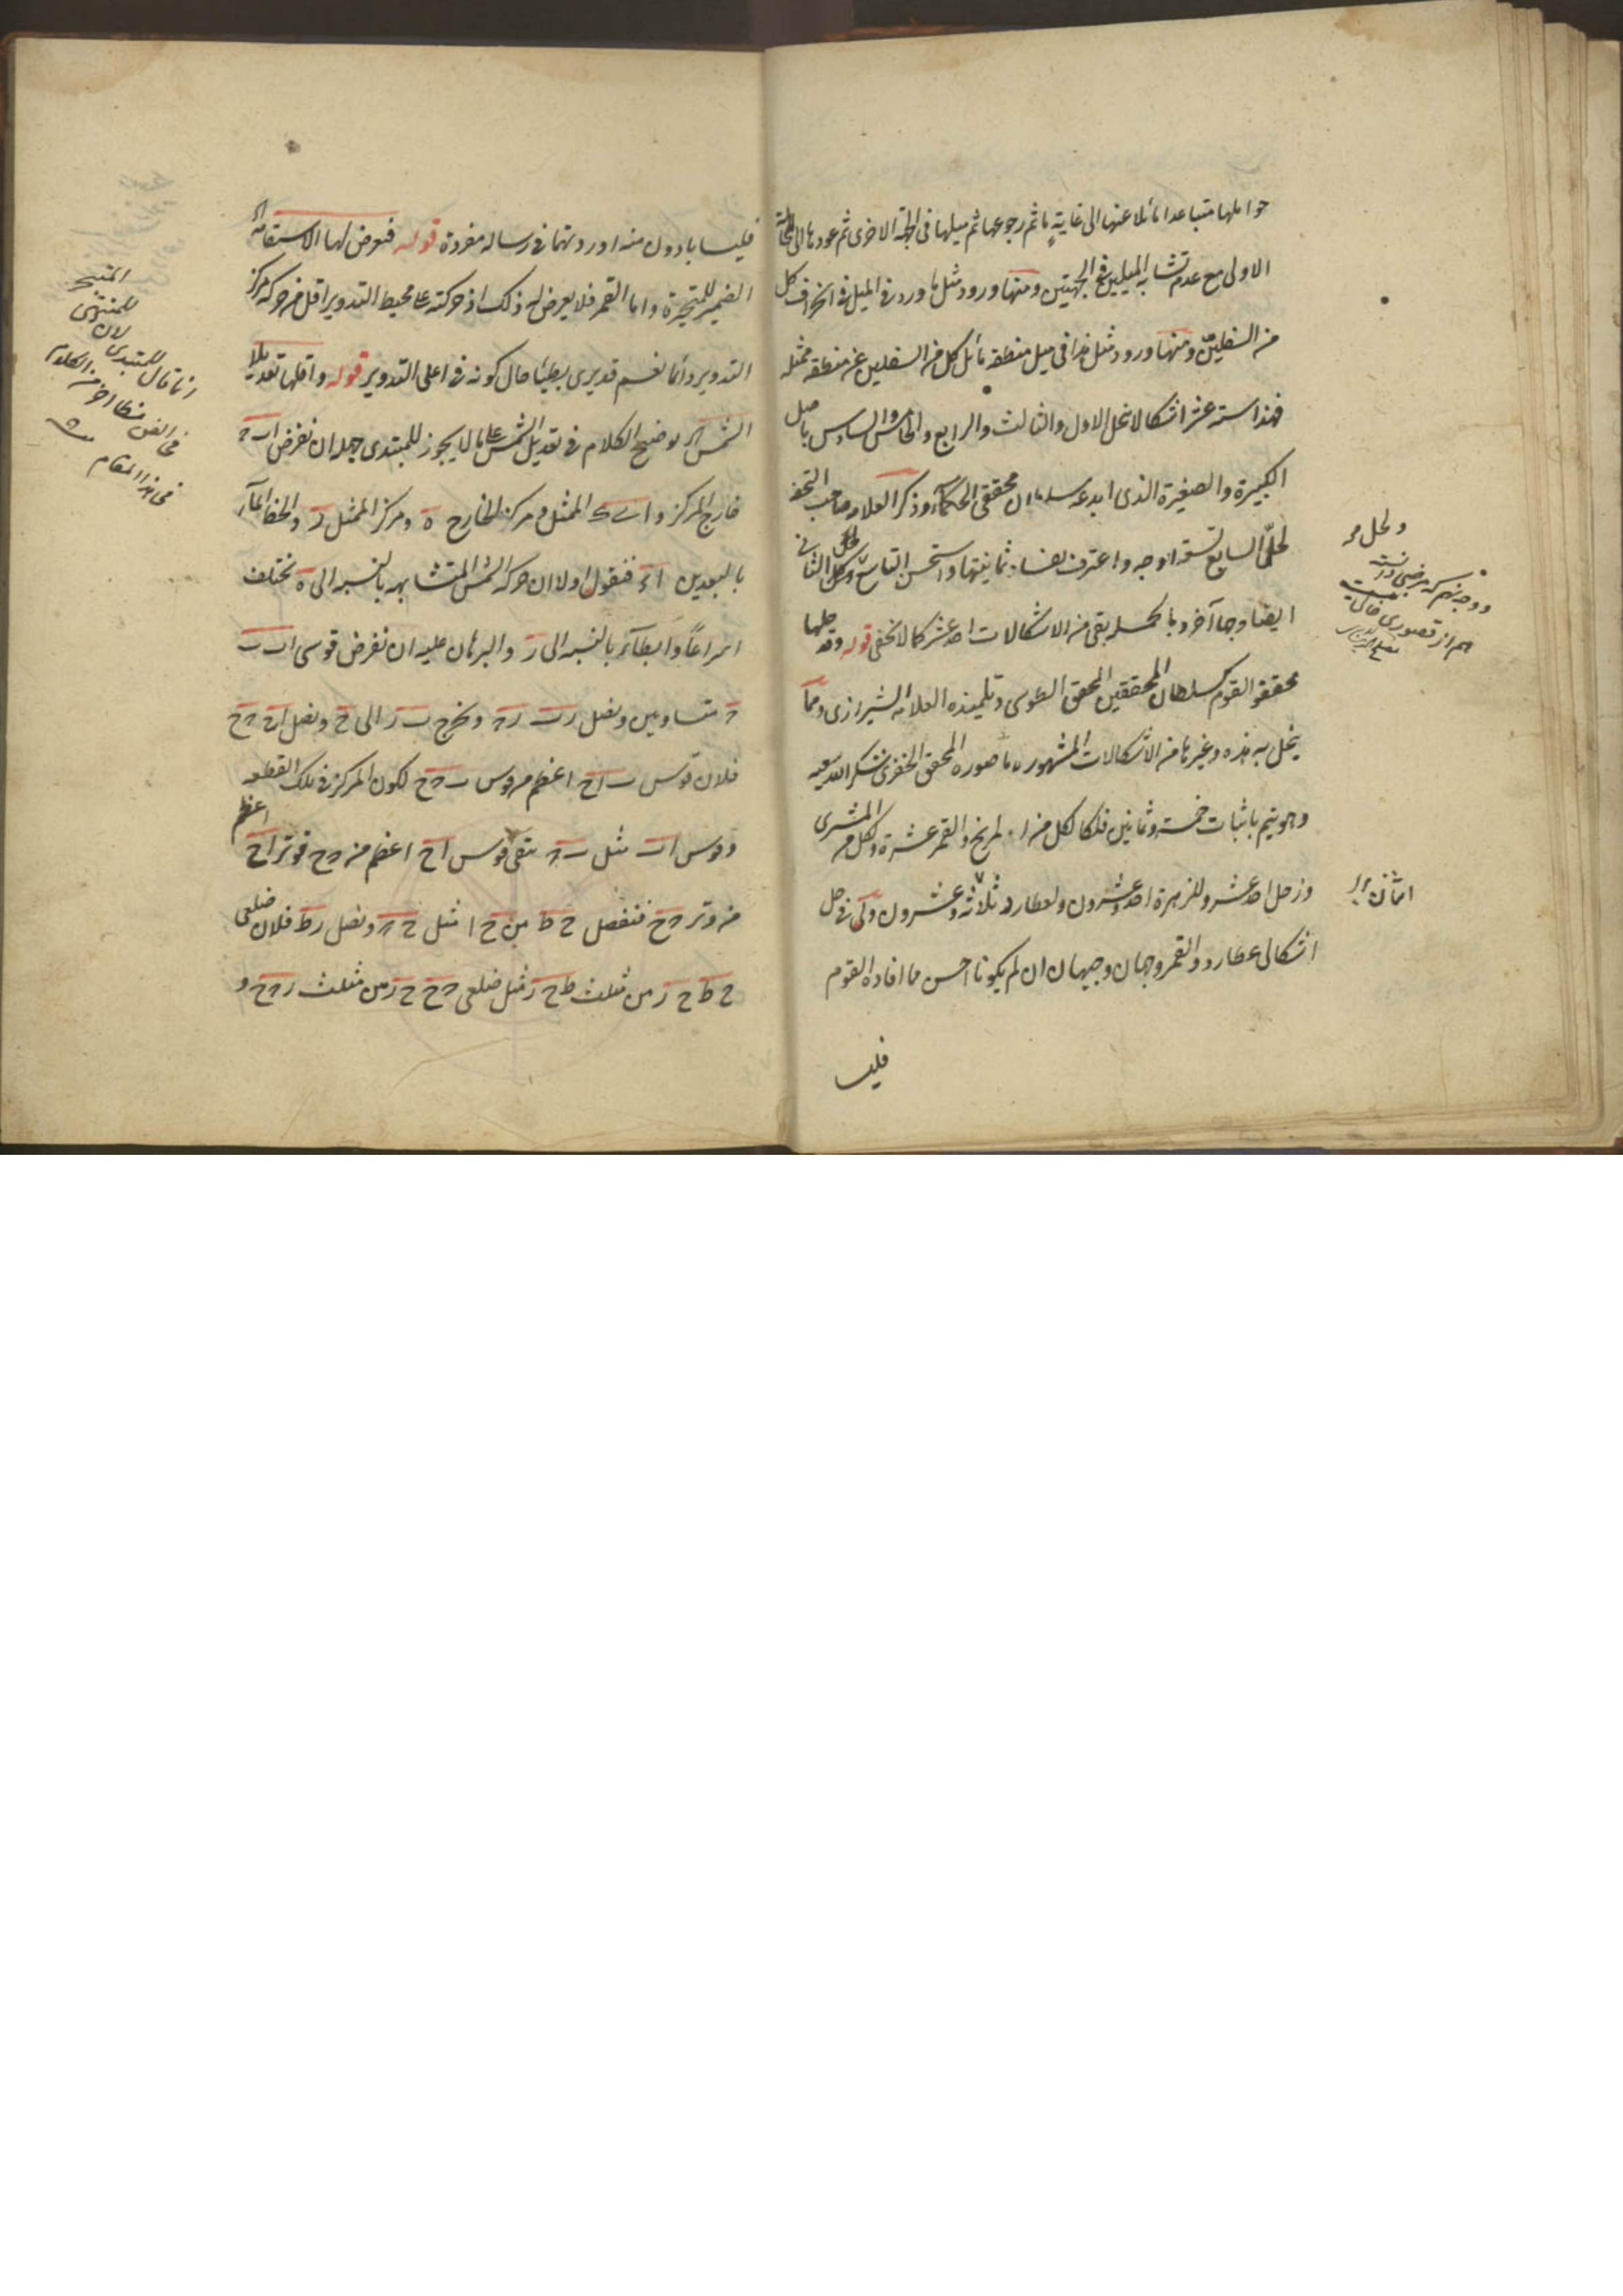 حواملها متباعدا مائلا عنها الى غاية ما ثم رجوعها ثم ميلها فى الجهة الاخرى ثم عودها الى الحالة
الاولى مع عدم تشابه الميلين فى الجهتين ومنها ورود مثل ما ورد فى الميل فى انحراف كل
من السفليين ومنها ورود مثل هذا فى ميل منطقه مائل كل من السفليين عن منطقه ممثله
فهذا سته عشر اشكالا نحل الاول والثالث والرابع والخامس والسادس باصل
الكبيرة والصغيرة الذى ابدعه سلطان محققى الحكماء وذكر العلامه صاحب التحفه
لحل السابع تسعه اوجه واعترف بفساد ثمانيتها واستحسن التاسع ولحل الثانى
ايضا وجها آخر وبالجمله بقى من الاشكالات احد عشر كما لا يخفى قوله وقد حلها
محققو القوم كسلطان المحققين المحقق الطوسى وتلميذه العلامه الشيرازى ومما
ينحل به هذه وغيرها من الاشكالات المشهوره ما صوره المحقق الخفرى شكر الله سعيه
وهو يتم باثبات خمسة وثمانين فلكا لكل من المريخ والقمر عشرة ولكل من المشترى
وزحل احد عشر وللزهرة احد وعشرون ولعطارد ثلاثه وعشرون ولى فى حل
اشكالى عطارد والقمر وجهان وجيهان ان لم يكونا احسن مما افاده القوم
فليسا
ولحل
فليسا بادون منه اوردتهما فى رساله مفردة قوله فتعرض لها الاستقامه الخ
الضمير للمتحيرة واما القمر فلا يعرض له ذلك اذ حركته على محيط التدوير اقل من حركه مركز
التدوير دائما نعم قد يرى بطيئا حال كونه فى اعلى التدوير قوله واقلها تعديلا
الشمس الخ توضيح الكلام فى تعديل الشمس على ما لا يجوز للمبتدى جهله ان نفرض ا ب ح
خارج المركز و ا ء الممثل ومركز الخارج ه ومركز الممثل ر والخط المار
بالبعدين ا ء فنقول اولا ان حركه الشمس المتشابهه بالنسبه الى ه تختلف
اسراعا وابطاء بالنسبه الى ر والبرهان عليه ان نفرض قوسى ا ب ب
ح متساويين ونصل ر ب ر ح ونخرج ب ر الى ح ونصل ا ح ح ح
فلان قوس ب ا ح اعظم من قوس ب ح ح لكون المركز فى تلك القطعه
وقوس ا ب مثل ب ح تبقى قوس ا ح اعظم من ح ح فوتر ا ح اعظم
من وتر ح ح فنفصل ح ط من ح ا مثل ح ح ونصل ر ط فلان ضلعى
ح ط ح ر من مثلث ط ح ر مثل ضلعى ح ح ح ر من مثلث ر ح ح و
المتبحر
للمنتهى
انما قال للمبتدى لان
فى الفن
فى هذا المقام